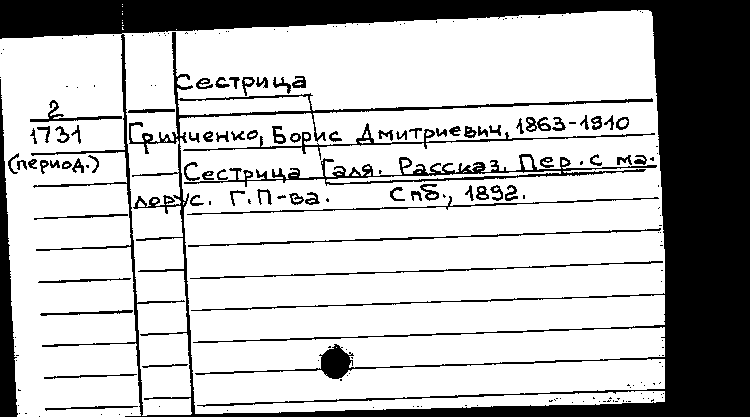 Сестрица
2
1731
(период.)
Гринченко, Борис Дмитриевич, 1863-1910
Сестрица Галя. Рассказ. Пер. с ма-
лорус. Г. П-ва. Спб., 1892.